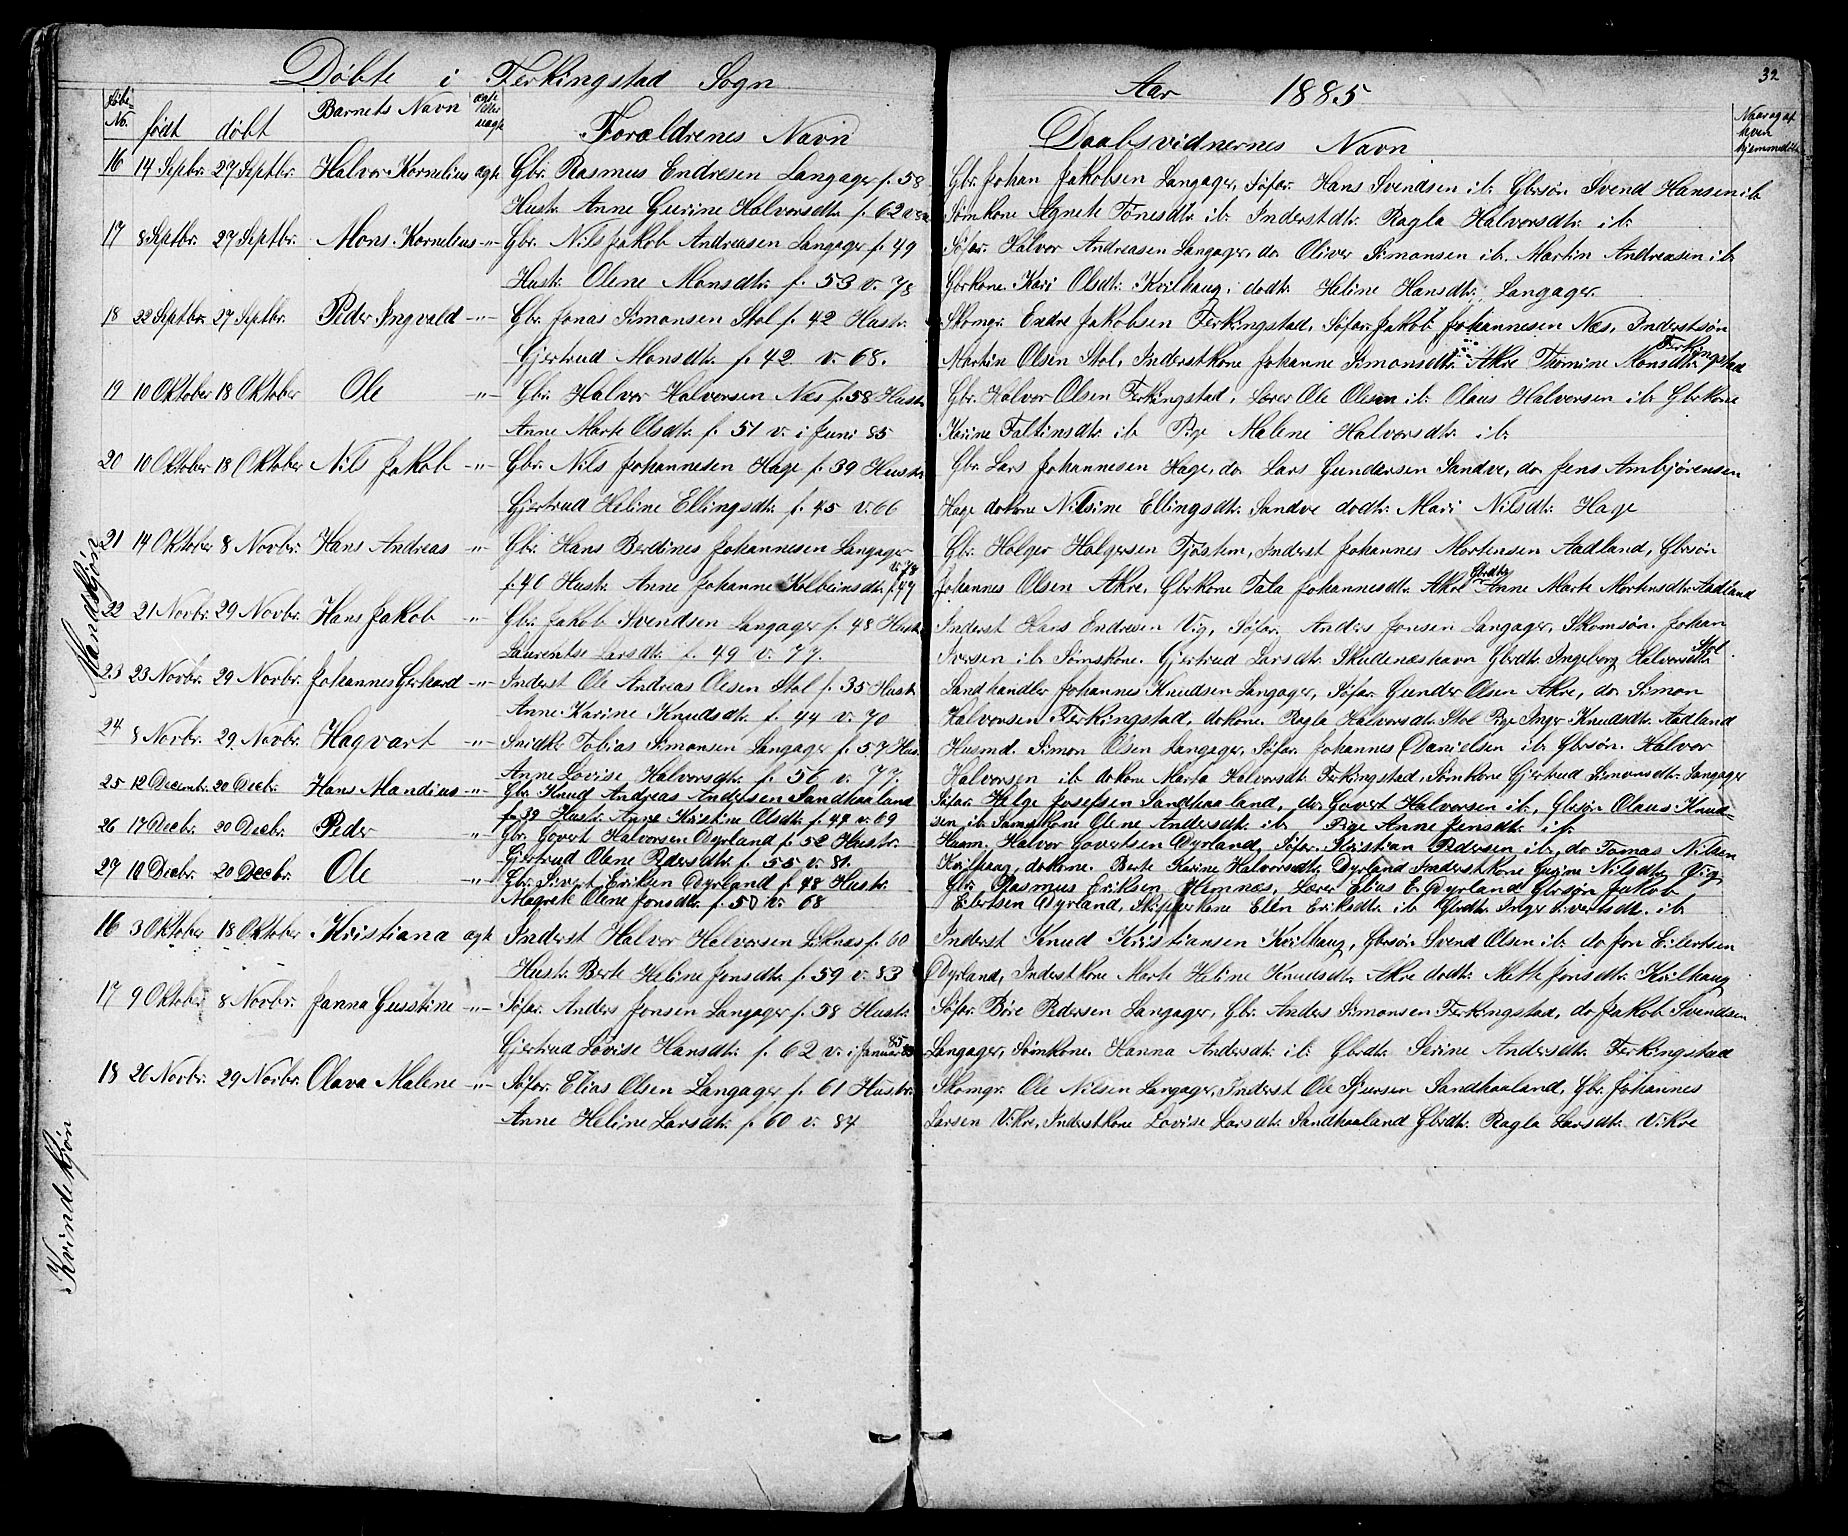 Døbte i Ferkingstad Sogn
Aar 1885
32
Løbe- No. født døbt Barnets Navn ægte eller uægte Forældrenes Navn
Daabsvidnernes Navn
Naar og af hvem hjemmedøbt
Mandkjøn
16 14 Septbr. 27 Septbr. Halvor Kornelius ægte Gbr. Rasmus Endresen Langager f. 58
Hustr. Anne Gurine Halvorsdtr. f. 62
Gbr. Johan Jakobsen Langager, Søfar. Hans Svendsen ib. Gbrsøn Svend Hansen ib
Sømkone Agnete Tønesdtr. ib. Inderstdtr. Ragla Halvorsdtr. ib.
17 8 Septbr. 27 Septbr. Mons Kornelius -"- Gbr. Nils Jakob Andreasen Langager f. 49
Hustr. Olene Monsdtr. f. 53 v. 78
Søfar. Halvor Andreasen Langager, do Oliver Simonsen ib. Martin Andreasen ib
Gbrkone Kari Olsdtr. Kvilhaug, dodtr. Heline Hansdtr. Langager.
18 22 Septbr. 27 Septbr. Peder Ingvald -"- Gbr. Jonas Simonsen Stol f. 42 Hustr.
Gjertrud Monsdtr. f. 42 v. 68.
Skomgr. Endre Jakobsen Ferkingstad, Søfar. Jakob Johannesen Næs, Inderstsøn
Martin Olsen Stol, Inderstkone Johanne Simonsdtr. Akre Thomine Monsdtr. Ferkingstad
19 10 Oktober 18 Oktober Ole -"- Gbr. Halvor Halvorsen Næs f. 58 Hustr.
Anne Marte Olsdtr. f. 51 v. i Juni 85
Gbr. Halvor Olsen Ferkingstad, Lærer Ole Olsen ib. Olaus Halvorsen ib Gbrkone
Karine Faltinsdtr. ib Pige Malene Halvorsdtr. ib
20 10 Oktober 18 Oktober Nils Jakob -"- Gbr. Nils Johannesen Hage f. 39 Hustr.
Gjertrud Heline Ellingsdtr. f. 45 v. 66
Gbr. Lars Johannesen Hage, do Lars Gundersen Sandve, do Jens Ambjørensen
Hage dokone Nilsine Ellingsdtr. Sandve dodtr. Mari Nilsdtr. Hage
21 14 Oktober 8 Novbr. Hans Andreas -"- Gbr. Hans Berdines Johannesen Langager
f. 40 Hustr. Anne Johanne Kolbeinsdtr. f. 47 v. 78
Gbr. Holger Holgersen Tjøstem, Inderst Johannes Mortensen Aadland, Gbrsøn
Johannes Olsen Akre, Gbrkone Tala Johannesdtr. Akre Gbrdtr. Anne Marte Mortensdtr. Aadland
22 21 Novbr. 29 Novbr. Hans Jakob -"- Gbr. Jakob Svendsen Langager f. 48 Hustr.
Laurentse Larsdtr. f. 49 v. 77.
Inderst Hans Endresen Vig, Søfar. Anders Jonsen Langager, Skomsøn. Johan
Iversen ib Sømskone. Gjertrud Larsdtr. Skudenæshavn Gbrdtr. Ingeborg Halvorsdtr. Stol.
23 23 Novbr. 29 Novbr. Johannes Gerhard -"- Inderst Ole Andreas Olesen Stol f. 35 Hustr.
Anne Karine Knudsdtr. f. 44 v. 70
Landhandler Johannes Knudsen Langager, Søfar. Gunder Olsen Akre, do Simon
Halvorsen Ferkingstad, dokone. Ragla Halvorsdtr. Stol Pige Inger Knudsdtr. Aadland
24 8 Novbr. 29 Novbr. Hagvart -"- Snidk. Tobias Simonsen Langager f. 57 Hus.
Anne Lovise Halvorsdtr. f. 56 v. 77.
Husmd. Simon Olsen Langager, Søfar. Johannes Danielsen ib. Gbrsøn. Halvor
Halvorsen ib dokone Marta Halvorsdtr. Ferkingstad, Sømkone Gjertrud Simonsdtr. Langager
25 12 Decembr. 20 Decbr. Hans Mandius -"- Gbr. Knud Andreas Andersen Sandhaaland
f. 39 Hustr. Anne Kristine Olsdtr. f. 47 v. 69
Søfar. Helge Josefsen Sandhaaland, do Govert Halvorsen ib, Gbrsøn Olaus Knud-
sen ib Sømskone Olene Andersdtr. ib Pige Anne Jensdtr. ib.
26 17 Decbr. 20 Decbr. Peder -"- Gbr. Govert Halvorsen Dyrland f. 52 Hustr.
Gjertrud Olene Pedersdtr. f. 55 v. 81.
Husm. Halvor Govertsen Dyrland, Søfar. Kristian Pedersen ib, do Tomas Nilsen
Kvilhaug, dokone. Berte Karine Halvorsdtr. Dyrland Inderstkone Gusine Nilsdtr. Vig
27 10 Decbr. 20 Decbr. Ole -"- Gbr. Sivert Eriksen Dyrland f. 48 Hustr.
Magrete Olene Jonsdtr. f. 50 v. 68
Gbr. Rasmus Eriksen Hemnæs, Lærer Elias E. Dyrland Gbrsøn Jakob
Eilertsen Dyrland, Skipperkone Elen Eriksdtr. ib Gbrdtr. Inger Sivertsdtr. ib
Kvindekjøn
16 3 Oktober 18 Oktober Kristiana ægte Inderst Halvor Halvorsen Liknæs f. 60
Hustr. Berte Heline Jonsdtr. f. 59 v. 83
Inderst Knud Kristiansen Kvilhaug, Gbrsøn Svend Olsen ib do Jon Eilertsen
Dyrland, Inderstkone Marte Heline Knudsdtr. Akre dodtr. Mette Jonsdtr. Kvilhaug
17 9 Oktober 8 Novbr. Janna Gusstine -"- Søfar. Anders Jonsen Langager f. 58 Hustr.
Gjertrud Lovise Hansdtr. f. 62 v. i Januar 85
Søfar. Børe Pedersen Langager, Gbr. Anders Simonsen Ferkingstad, do Jakob Svendsen
Langager, Sømkone. Hanna Andersdtr. ib Gbrdtr. Serine Andersdtr. Ferkingstad
18 26 Novbr. 29 Novbr. Olava Malene -"- Søfar. Elias Olsen Langager f. 61 Hustr.
Anne Heline Larsdtr. f. 60 v. 84
Skomgr. Ole Nilsen Langager, Inderst Ole Sjursen Sandhaaland, Gbr. Johannes
Larsen Vikre, Inderstkone Lovise Larsdtr. Sandhaaland Gbrdtr. Ragla Larsdtr. Vikre